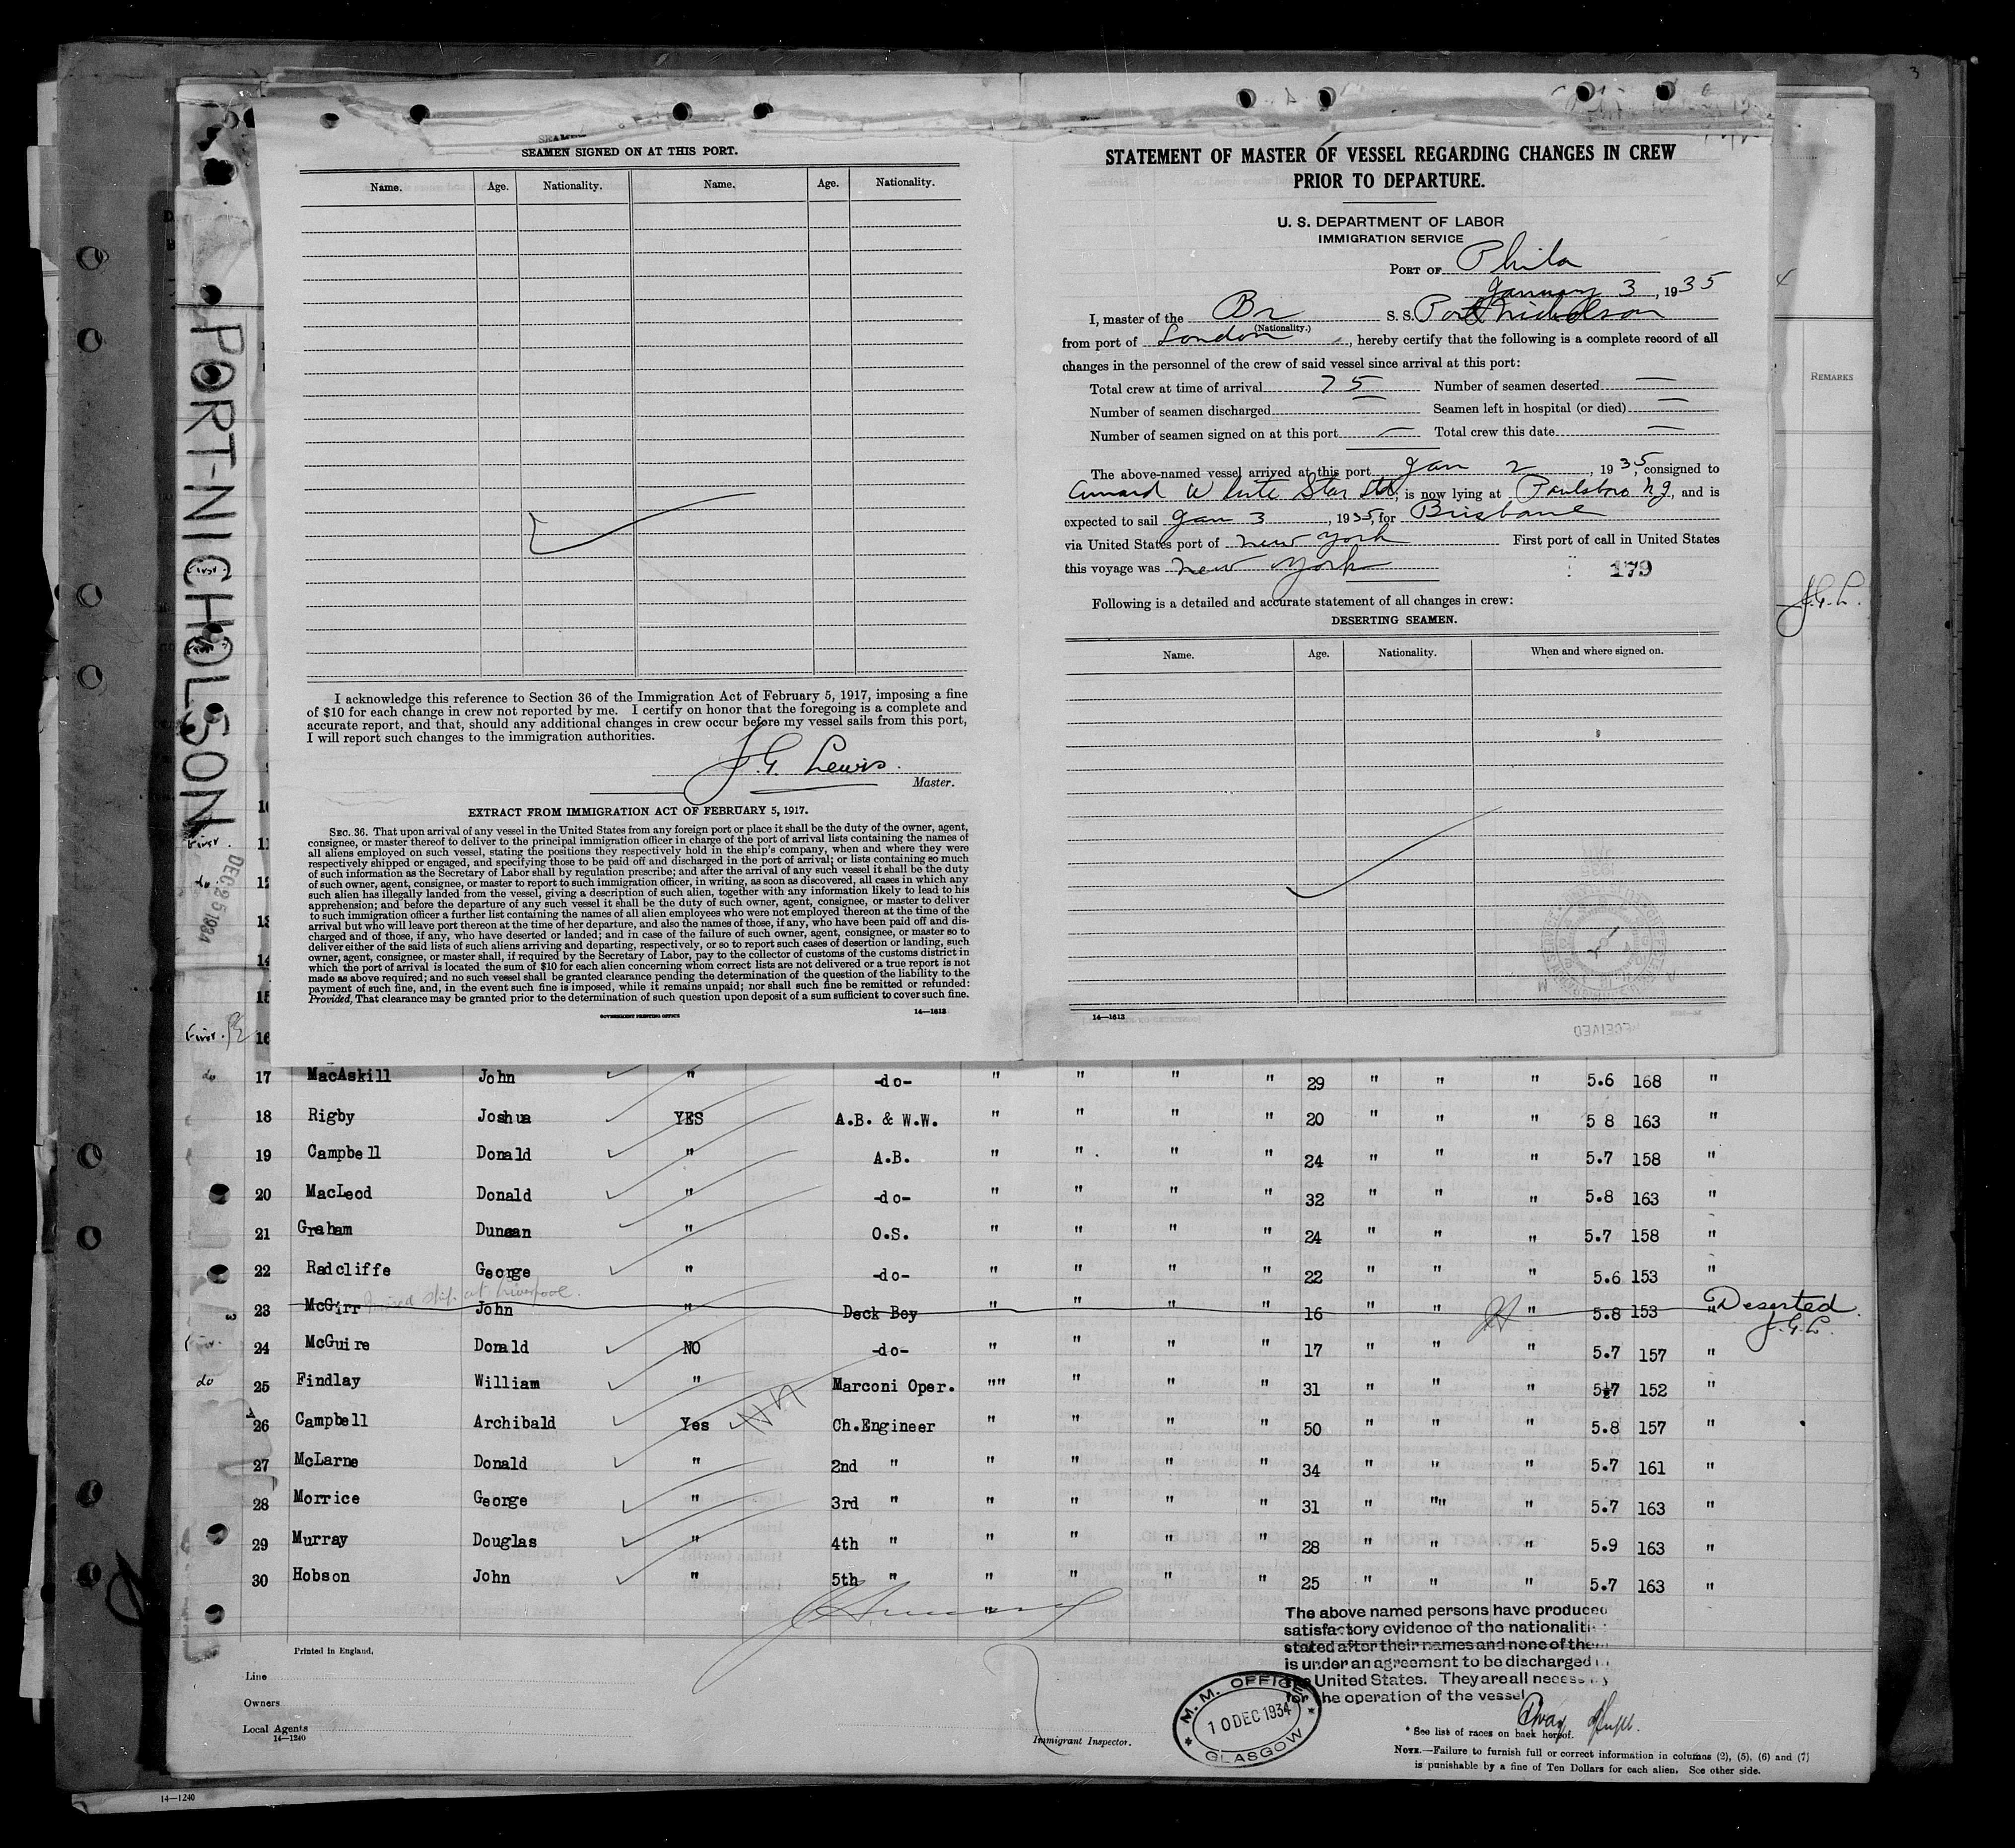 SEAMEN SIGNED ON AT THIS PORT.
Name. Age. Nationality. Name. Age. Nationality.
I acknowledge this reference to Section 36 of the Immigration Act of February 5, 1917, imposing a fine
of $10 for each change in crew not reported by me. I certify on honor that the foregoing is a complete and
accurate report, and that, should any additional changes in crew occur before my vessel sails from this port,
I will report such changes to the immigration authorities.
J. G. Lewis.
Master.
EXTRACT FROM IMMIGRATION ACT OF FEBRUARY 5, 1917.
SEC. 36. That upon arrival of any vessel in the United States from any foreign port or place it shall be the duty of the owner, agent,
consignee, or master thereof to deliver to the principal immigration officer in charge of the port of arrival lists containing the names of
all aliens employed on such vessel, stating the positions they respectively hold in the ship's company, when and where they were
respectively shipped or engaged, and specifying those to be paid off and discharged in the port of arrival; or lists containing so much
of such information as the Secretary of Labor shall by regulation prescribe; and after the arrival of any such vessel it shall be the duty
of such owner, agent, consignee, or master to report to such immigration officer, in writing, as soon as discovered, all cases in which any
such alien has illegally landed from the vessel, giving a description of such alien, together with any information likely to lead to his
apprehension; and before the departure of any such vessel it shall be the duty of such owner, agent, consignee, or master to deliver
to such immigration officer a further list containing the names of all alien employees who were not employed thereon at the time of the
arrival but who will leave port thereon at the time of her departure, and also the names of those, if any, who have been paid off and dis-
charged and of those, if any, who have deserted or landed; and in case of the failure of such owner, agent, consignee, or master so to
deliver either of the said lists of such aliens arriving and departing, respectively, or so to report such cases of desertion or landing, such
owner, agent, consignee, or master shall, if required by the Secretary of Labor, pay to the collector of customs of the customs district in
which the port of arrival is located the sum of $10 for each alien concerning whom correct lists are not delivered or a true report is not
made as above required; and no such vessel shall be granted clearance pending the determination of the question of the liability to the
payment of such fine, and, in the event such fine is imposed, while it remains unpaid; nor shall such fine be remitted or refunded:
Provided, That clearance may be granted prior to the determination of such question upon deposit of a sum sufficient to cover such fine.
GOVERNMENT PRINTING OFFICE 14—1613
STATEMENT OF MASTER OF VESSEL REGARDING CHANGES IN CREW
PRIOR TO DEPARTURE.
U. S. DEPARTMENT OF LABOR
IMMIGRATION SERVICE
PORT OF Phila
January 3, 1935
I, master of the Br S. S. Port Nicholson
(Nationality.)
from port of London, hereby certify that the following is a complete record of all
changes in the personnel of the crew of said vessel since arrival at this port:
Total crew at time of arrival 75 Number of seamen deserted —
Number of seamen discharged — Seamen left in hospital (or died) —
Number of seamen signed on at this port — Total crew this date —
The above-named vessel arrived at this port Jan 2, 1935, consigned to
Cunard White Star Ltd, is now lying at Paulsboro N J, and is
expected to sail Jan 3, 1935, for Brisbane
via United States port of New York First port of call in United States
this voyage was New York
179
Following is a detailed and accurate statement of all changes in crew:
DESERTING SEAMEN.
Name. Age. Nationality. When and where signed on.
14—1613
REMARKS
J.G.L.
PORT-NICHOLSON
DEC 25 1934
17 MacAskill John " -do- " " " " 29 " " " 5.6 168 "
18 Rigby Joshua YES A.B. & W.W. " " " " 20 " " 5 8 163 "
19 Campbell Donald " A.B. " " " " 24 " " " 5.7 158 "
20 MacLeod Donald " -do- " " " " 32 " " " 5.8 163 "
21 Graham Duncan " O.S. " " " " 24 " " " 5.7 158 "
22 Radcliffe George " -do- " " " " 22 " " " 5.6 153 "
23 McGirr John " Deck Boy " " " " 16 " " " 5.8 153 " Deserted.
J.G.L.
24 McGuire Donald NO -do- " " " " 17 " " " 5.7 157 "
25 Findlay William " Marconi Oper. "" " " " 31 " " " 5½7 152 "
26 Campbell Archibald Yes Ch.Engineer " " " " 50 " " " 5.8 157 "
27 McLarne Donald " 2nd " " " " " 34 " " " 5.7 161 "
28 Morrice George " 3rd " " " " " 31 " "" " 5.7 163 "
29 Murray Douglas " 4th " " " " " 28 " " " 5.9 163 "
30 Hobson John " 5th " " " " " 25 " " " 5.7 163 "
The above named persons have produced
satisfactory evidence of the nationaliti
stated after their names and none of them
is under an agreement to be discharged
United States. They are all necess
for the operation of the vessel
Printed in England.
Line
Owners
Local Agents
14—1240
Immigrant Inspector.
M. M. OFFICE
10 DEC 1934
GLASGOW
* See list of races on back hereof.
NOTE.—Failure to furnish full or correct information in columns (2), (5), (6) and (7)
is punishable by a fine of Ten Dollars for each alien. See other side.
14—1240